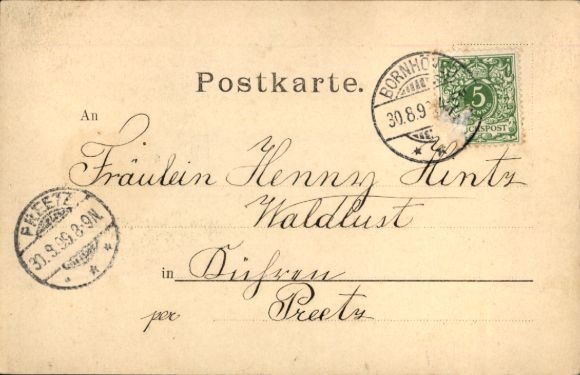 Postkarte.
BORNHÖ
30.8.9
5
PFENNIG
REICHSPOST
An
Fräulein Henny Hintz
Waldlust
in Kühren
per Preetz
PREETZ
30.8.99.8-9N.